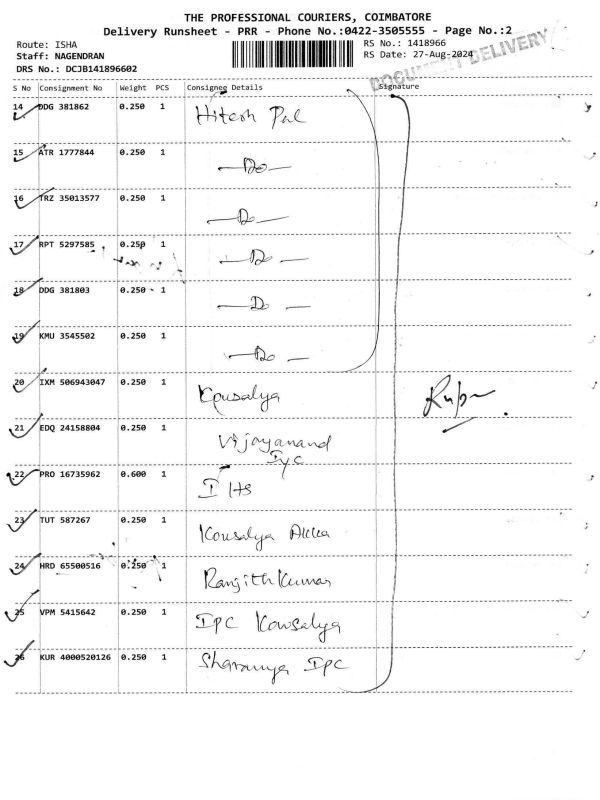 THE PROFESSIONAL COURIERS, COIMBATORE
Delivery Runsheet - PRR - Phone No.:0422-3505555 - Page No.:2
Route: ISHA
Staff: NAGENDRAN
DRS No.: DCJB141896602
RS No.: 1418966
RS Date: 27-Aug-2024
DOCUMENT DELIVERY
S No Consignment No Weight PCS Consignee Details Signature
14 DDG 381862 0.250 1 Hitesh Pal
15 ATR 1777844 0.250 1 —Do—
16 TRZ 35013577 0.250 1 —Do—
17 RPT 5297585 0.250 1 —Do—
18 DDG 381803 0.250 1 —Do—
19 KMU 3545502 0.250 1 —Do—
20 IXM 506943047 0.250 1 Kousalya
21 EDQ 24158804 0.250 1 Vijayanand
Iyc
22 PRO 16735962 0.600 1 I HS
23 TUT 587267 0.250 1 Kousalya Akka
24 HRD 65500516 0.250 1 Ranjith Kumar
25 VPM 5415642 0.250 1 IPC Kowsalya
26 KUR 4000520126 0.250 1 Sharanya IPC